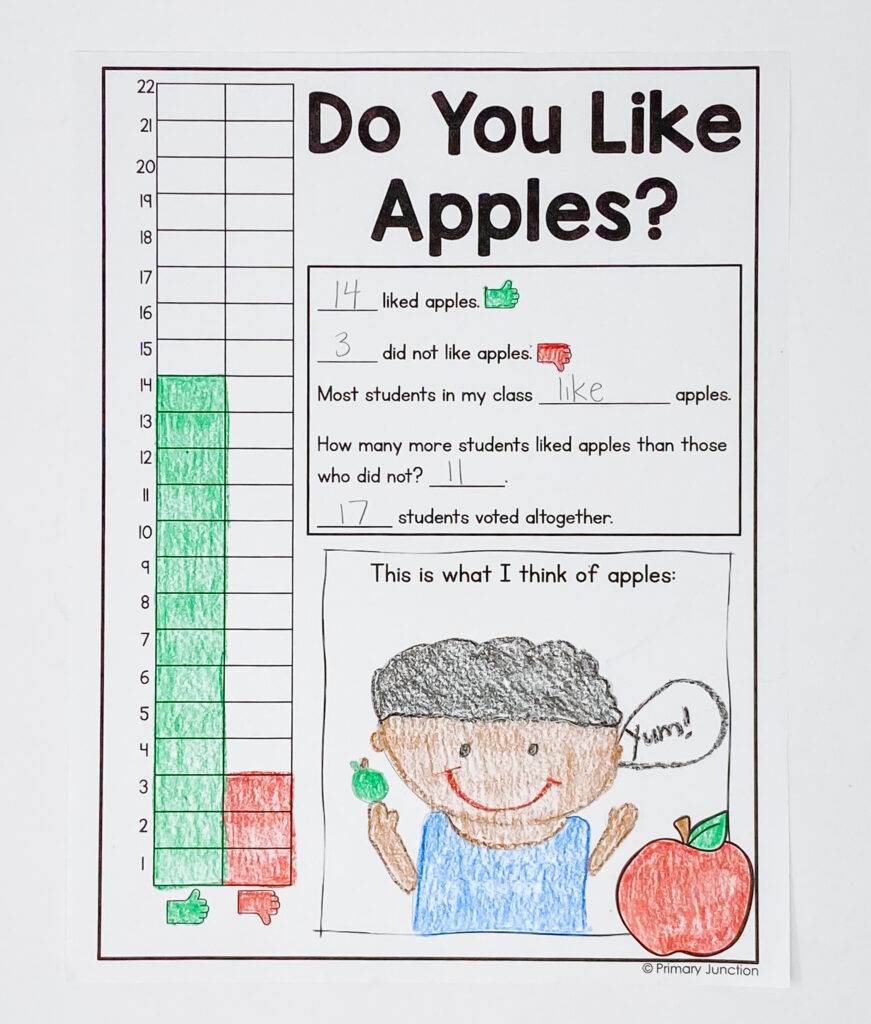 Do You Like
Apples?
22
21
20
19
18
17
16
15
14
13
12
11
10
9
8
7
6
5
4
3
2
1
14 liked apples.
3 did not like apples.
Most students in my class like apples.
How many more students liked apples than those
who did not? 11.
17 students voted altogether.
This is what I think of apples:
Yum!
© Primary Junction